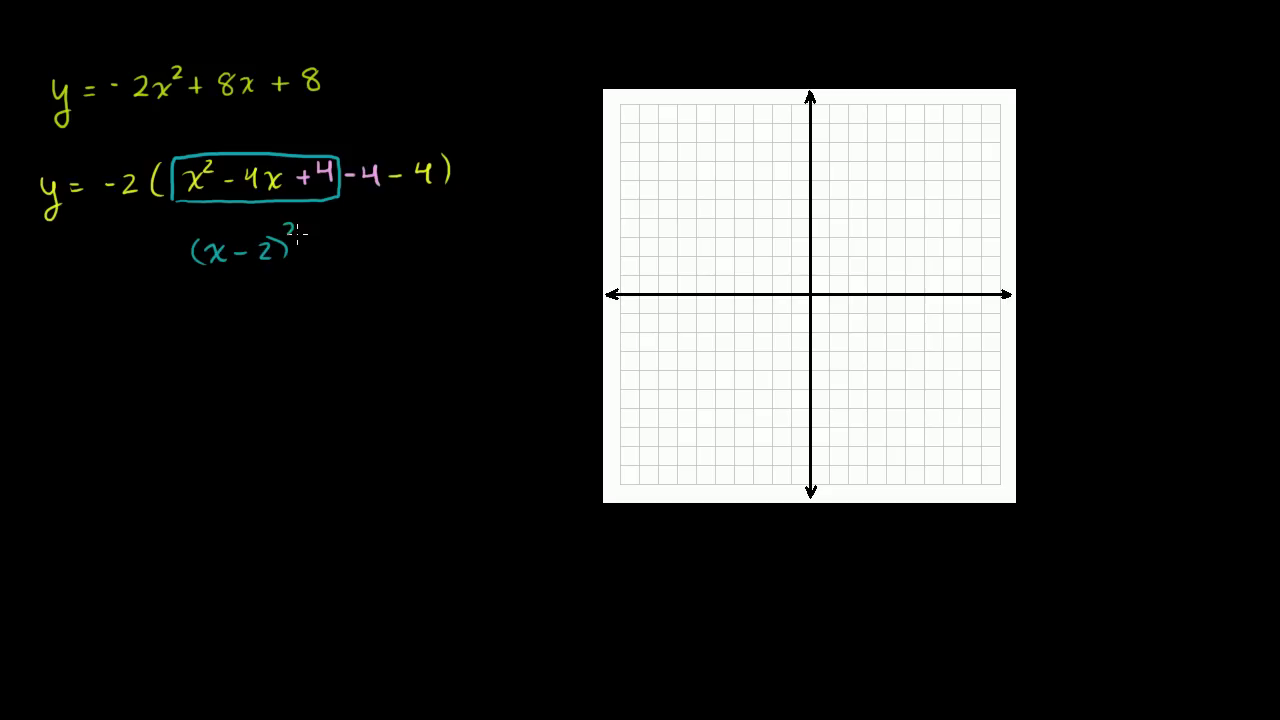 y = - 2x² + 8x + 8
y = -2 ( x² - 4x + 4 - 4 - 4 )
(x - 2)²